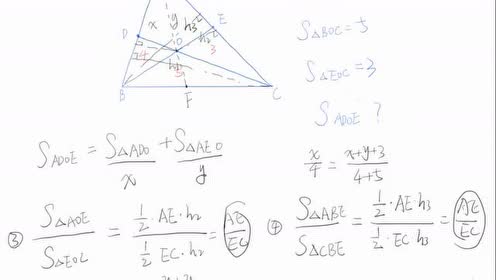 x y h₃ E
D O h₂ 3
4 h₁ 5
B F C
S△BOC = 5
S△EOC = 3
S_ADOE ?
S_ADOE = S△ADO/x + S△AEO/y
x/4 = (x+y+3)/(4+5)
③ S△AOE/S△EOC = (½·AE·h₂)/(½·EC·h₂) = AE/EC
④ S△ABE/S△CBE = (½·AE·h₃)/(½·EC·h₃) = AE/EC